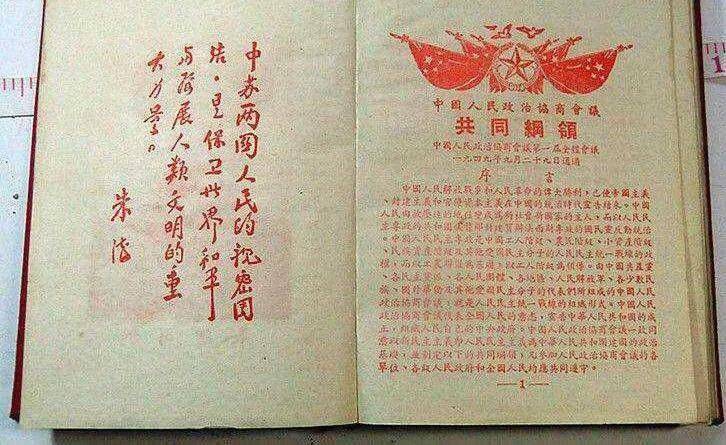 中苏两国人民的親密团
结，是保卫世界和平
与發展人類文明的重
大力量。
朱德
中國人民政治協商會議
共同綱領
中國人民政治協商會議第一屆全體會議
一九四九年九月二十九日通過
序言
中國人民解放戰爭和人民革命的偉大勝利，已使帝國主義
、封建主義和官僚資本主義在中國的統治時代宣告結束。中國
人民由被壓迫的地位變成為新社會新國家的主人，而以人民民
主專政的共和國代替那封建買辦法西斯專政的國民黨反動統治
。中國人民民主專政是中國工人階級、農民階級、小資產階級
、民族資產階級及其他愛國民主分子的人民民主統一戰線的政
權，而以工農聯盟為基礎，以工人階級為領導。由中國共產黨
、各民主黨派、各人民團體、各地區、人民解放軍、各少數民
族、國外華僑及其他愛國民主分子的代表們所組成的中國人民
政治協商會議，就是人民民主統一戰線的組織形式。中國人民
政治協商會議代表全國人民的意志，宣告中華人民共和國的成
立，組織人民自己的中央政府。中國人民政治協商會議一致同
意以新民主主義即人民民主主義為中華人民共和國建國的政治
基礎，並制定以下的共同綱領，凡參加人民政治協商會議的各
單位、各級人民政府和全國人民均應共同遵守。
—1—